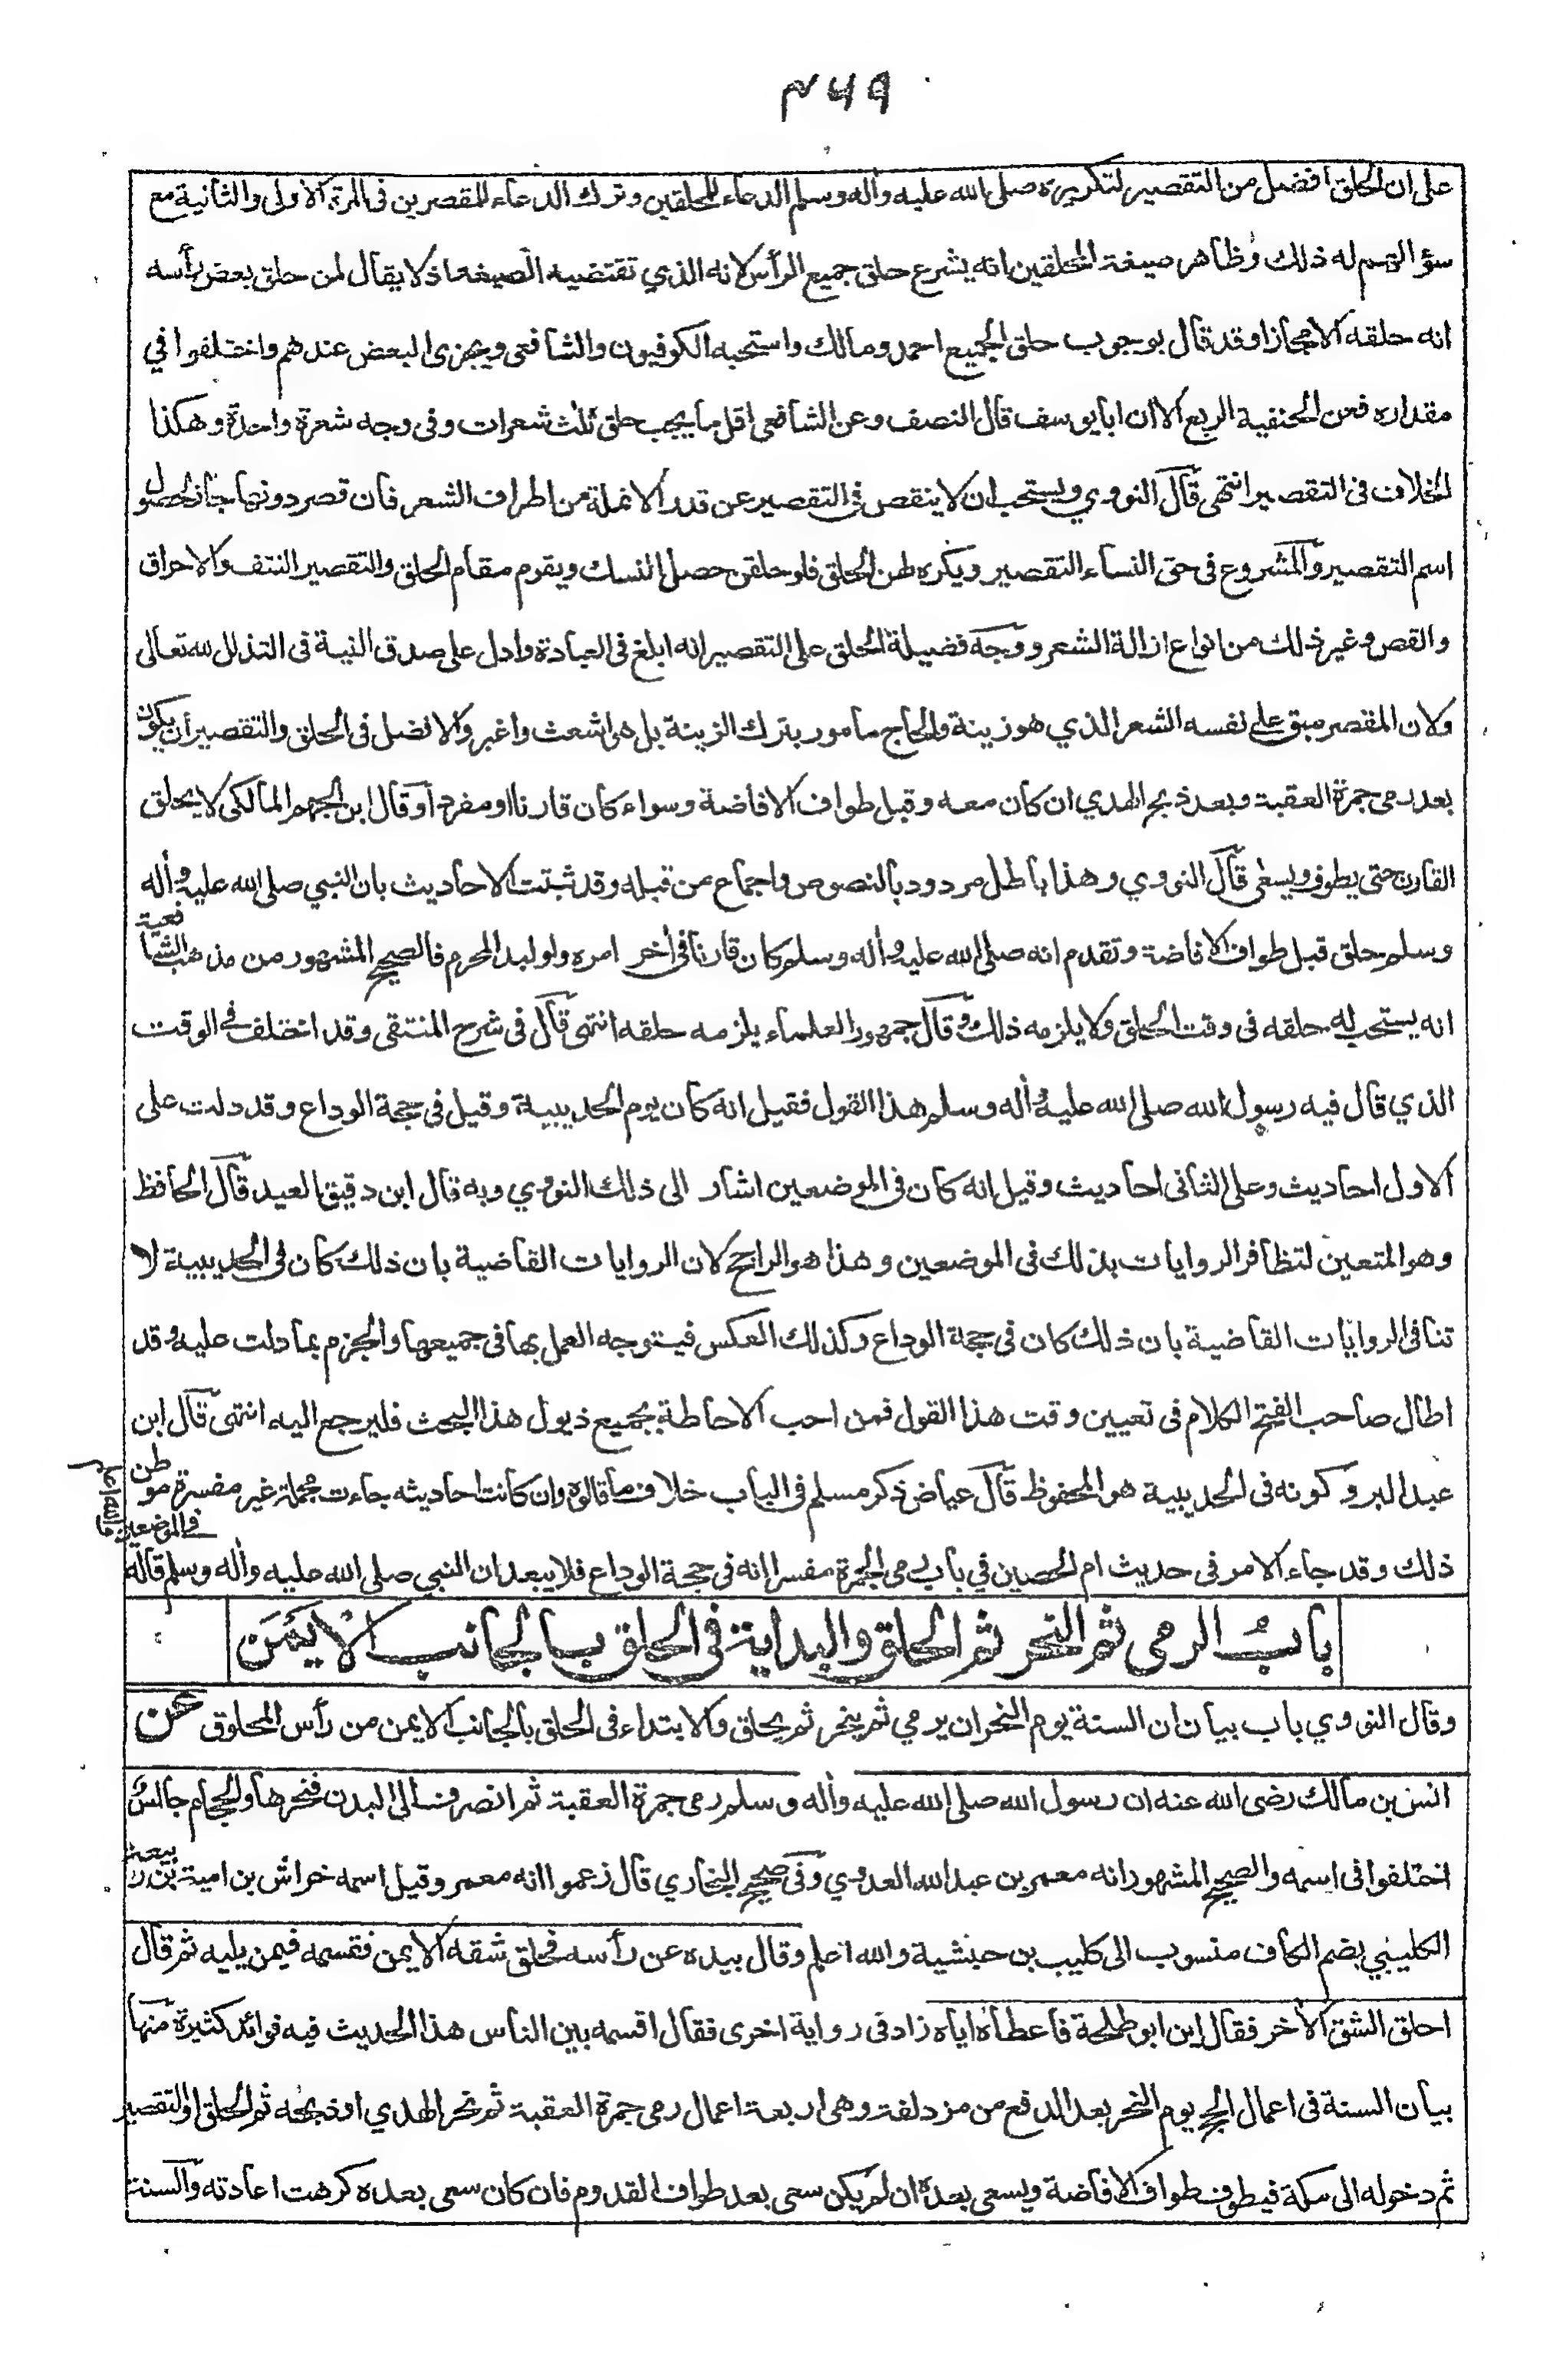 ٤٦٩
على ان الحلق افضل من التقصير لتكريره صلى الله عليه واٰله وسلم الدعاء للمحلقين وترك الدعاء للمقصرين فى المرة الاولى والثانية مع
سؤالهم له ذلك وظاهر صيغة المحلقين انه يشرع حلق جميع الرأس لانه الذي تقتضيه الصيغة اذ لا يقال لمن حلق بعض رأسه
انه حلقه الا مجازا وقد قال بوجوب حلق الجميع احمد ومالك واستحبه الكوفيون والشافعى ويجزى البعض عندهم واختلفوا في
مقداره فعن الحنفية الربع الا ان ابا يوسف قال النصف وعن الشافعى اقل ما يجب حلق ثلث شعرات وفى وجه شعرة واحدة وهكذا
الخلاف فى التقصير انتهى قال النووي ويستحب ان لا ينقص فى التقصير عن قدر الانملة من اطراف الشعر فان قصر دونها جاز لحصول
اسم التقصير والمشروع فى حق النساء التقصير ويكره لهن الحلق فلو حلقن حصل النسك ويقوم مقام الحلق والتقصير النتف والاحراق
والقص وغير ذلك من انواع ازالة الشعر ووجه فضيلة الحلق على التقصير انه ابلغ فى العبادة وادل على صدق النية فى التذلل لله تعالى
ولان المقصر مبق على نفسه الشعر الذي هو زينة والحاج مامور بترك الزينة بل هو اشعث واغبر والافضل فى الحلق والتقصير ان يكون
بعد رمى جمرة العقبة وبعد ذبح الهدي ان كان معه وقبل طواف الافاضة وسواء كان قارنا او مفردا وقال ابن الجهم المالكى لا يحلق
القارن حتى يطوف ويسعى قال النووي وهذا باطل مردود بالنصوص واجماع من قبله وقد ثبتت الاحاديث بان النبي صلى الله عليه واٰله
وسلم حلق قبل طواف الافاضة وتقدم انه صلى الله عليه واٰله وسلم كان قارنا فى اٰخر امره ولو لبد المحرم فالصحيح المشهور من مذهب الشافعية
انه يستحب له حلقه فى وقت الحلق ولا يلزمه ذلك وقال جمهور العلماء يلزمه حلقه انتهى قال فى شرح المنتقى وقد اختلف فى الوقت
الذي قال فيه رسول الله صلى الله عليه واٰله وسلم هذا القول فقيل انه كان يوم الحديبية وقيل فى حجة الوداع وقد دلت على
الاول احاديث وعلى الثانى احاديث وقيل انه كان فى الموضعين اشار الى ذلك النووي وبه قال ابن دقيق العيد قال الحافظ
وهو المتعين لتظافر الروايات بذلك فى الموضعين وهذا هو الراجح لان الروايات القاضية بان ذلك كان فى الحديبية لا
تنافى الروايات القاضية بان ذلك كان فى حجة الوداع وكذلك العكس فيتوجه العمل بها فى جميعها والجزم بما دلت عليه وقد
اطال صاحب الفتح الكلام فى تعيين وقت هذا القول فمن احب الاحاطة بجميع ذيول هذا البحث فليرجع اليه انتهى قال ابن
عبد البر وكونه فى الحديبية هو المحفوظ قال عياض ذكر مسلم فى الباب خلاف ما قالوه وان كانت احاديثه جاءت مجملة غير مفسرة موطن
ذلك وقد جاء الامر فى حديث ام الحصين في باب رمى الجمرة مفسرا انه فى حجة الوداع فلا يبعد ان النبي صلى الله عليه واٰله وسلم قاله
فى الموضعين والله اعلم
بابُ الرمى ثم النحر ثم الحلق والبداية فى الحلق بالجانب الايمَن
وقال النووي باب بيان ان السنة يوم النحر ان يرمي ثم ينحر ثم يحلق والابتداء فى الحلق بالجانب الايمن من رأس المحلوق عن
انس بن مالك رضى الله عنه ان رسول الله صلى الله عليه واٰله وسلم رمى جمرة العقبة ثم انصرف الى البدن فنحرها والحجام جالس
اختلفوا فى اسمه والصحيح المشهور انه معمر بن عبد الله العدوي وفى صحيح البخاري قال زعموا انه معمر وقيل اسمه خراش بن امية بن ربيعة
الكليبي بضم الكاف منسوب الى كليب بن حبشية والله اعلم وقال بيده عن رأسه فحلق شقه الايمن فقسمه فيمن يليه ثم قال
احلق الشق الاٰخر فقال اين ابو طلحة فاعطاه اياه زاد فى رواية اخرى فقال اقسمه بين الناس هذا الحديث فيه فوائد كثيرة منها
بيان السنة فى اعمال الحج يوم النحر بعد الدفع من مزدلفة وهى اربعة اعمال رمى جمرة العقبة ثم نحر الهدي او ذبحه ثم الحلق او التقصير
ثم دخوله الى مكة فيطوف طواف الافاضة ويسعى بعده ان لم يكن سعى بعد طواف القدوم فان كان سعى بعده كرهت اعادته والسنة